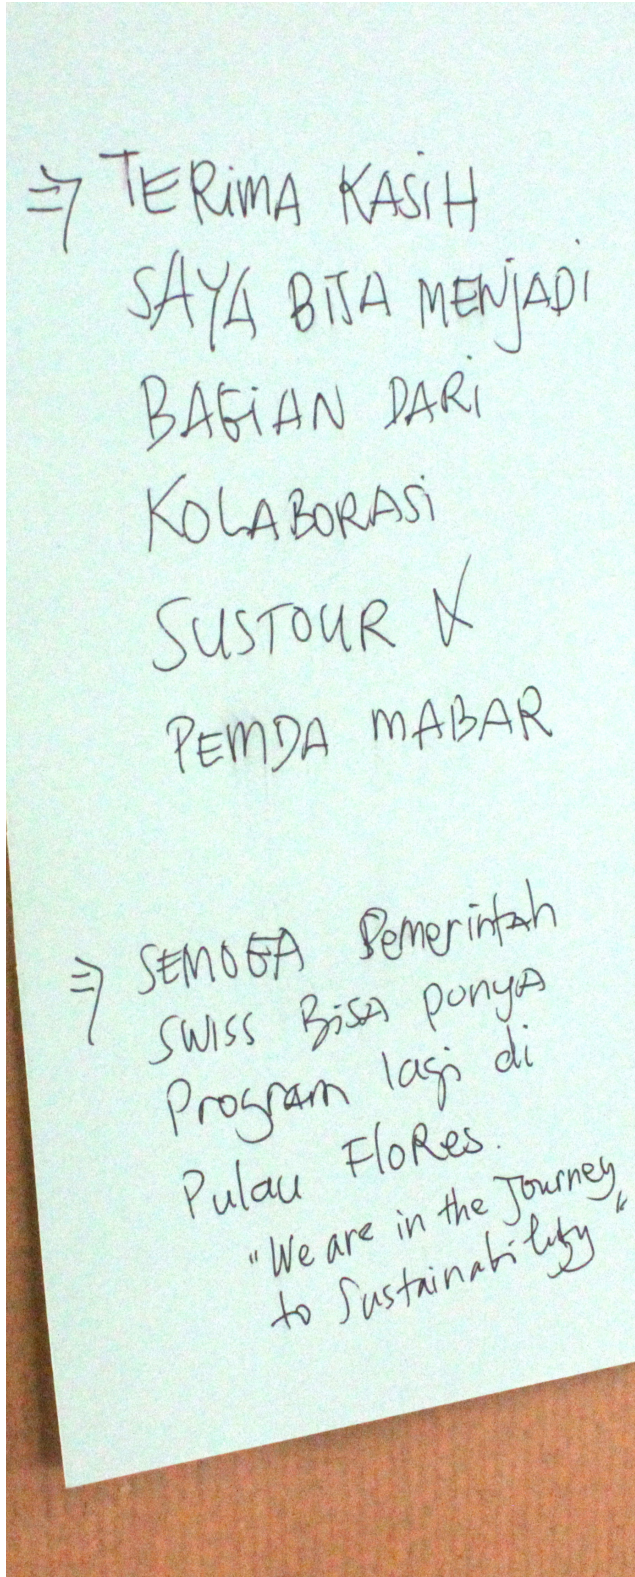 ⇒ TERIMA KASIH
SAYA BISA MENJADI
BAGIAN DARI
KOLABORASI
SUSTOUR &
PEMDA MABAR
⇒ SEMOGA Pemerintah
SWISS BISA punya
Program lagi di
Pulau FloRes.
"We are in the Journey
to Sustainability"